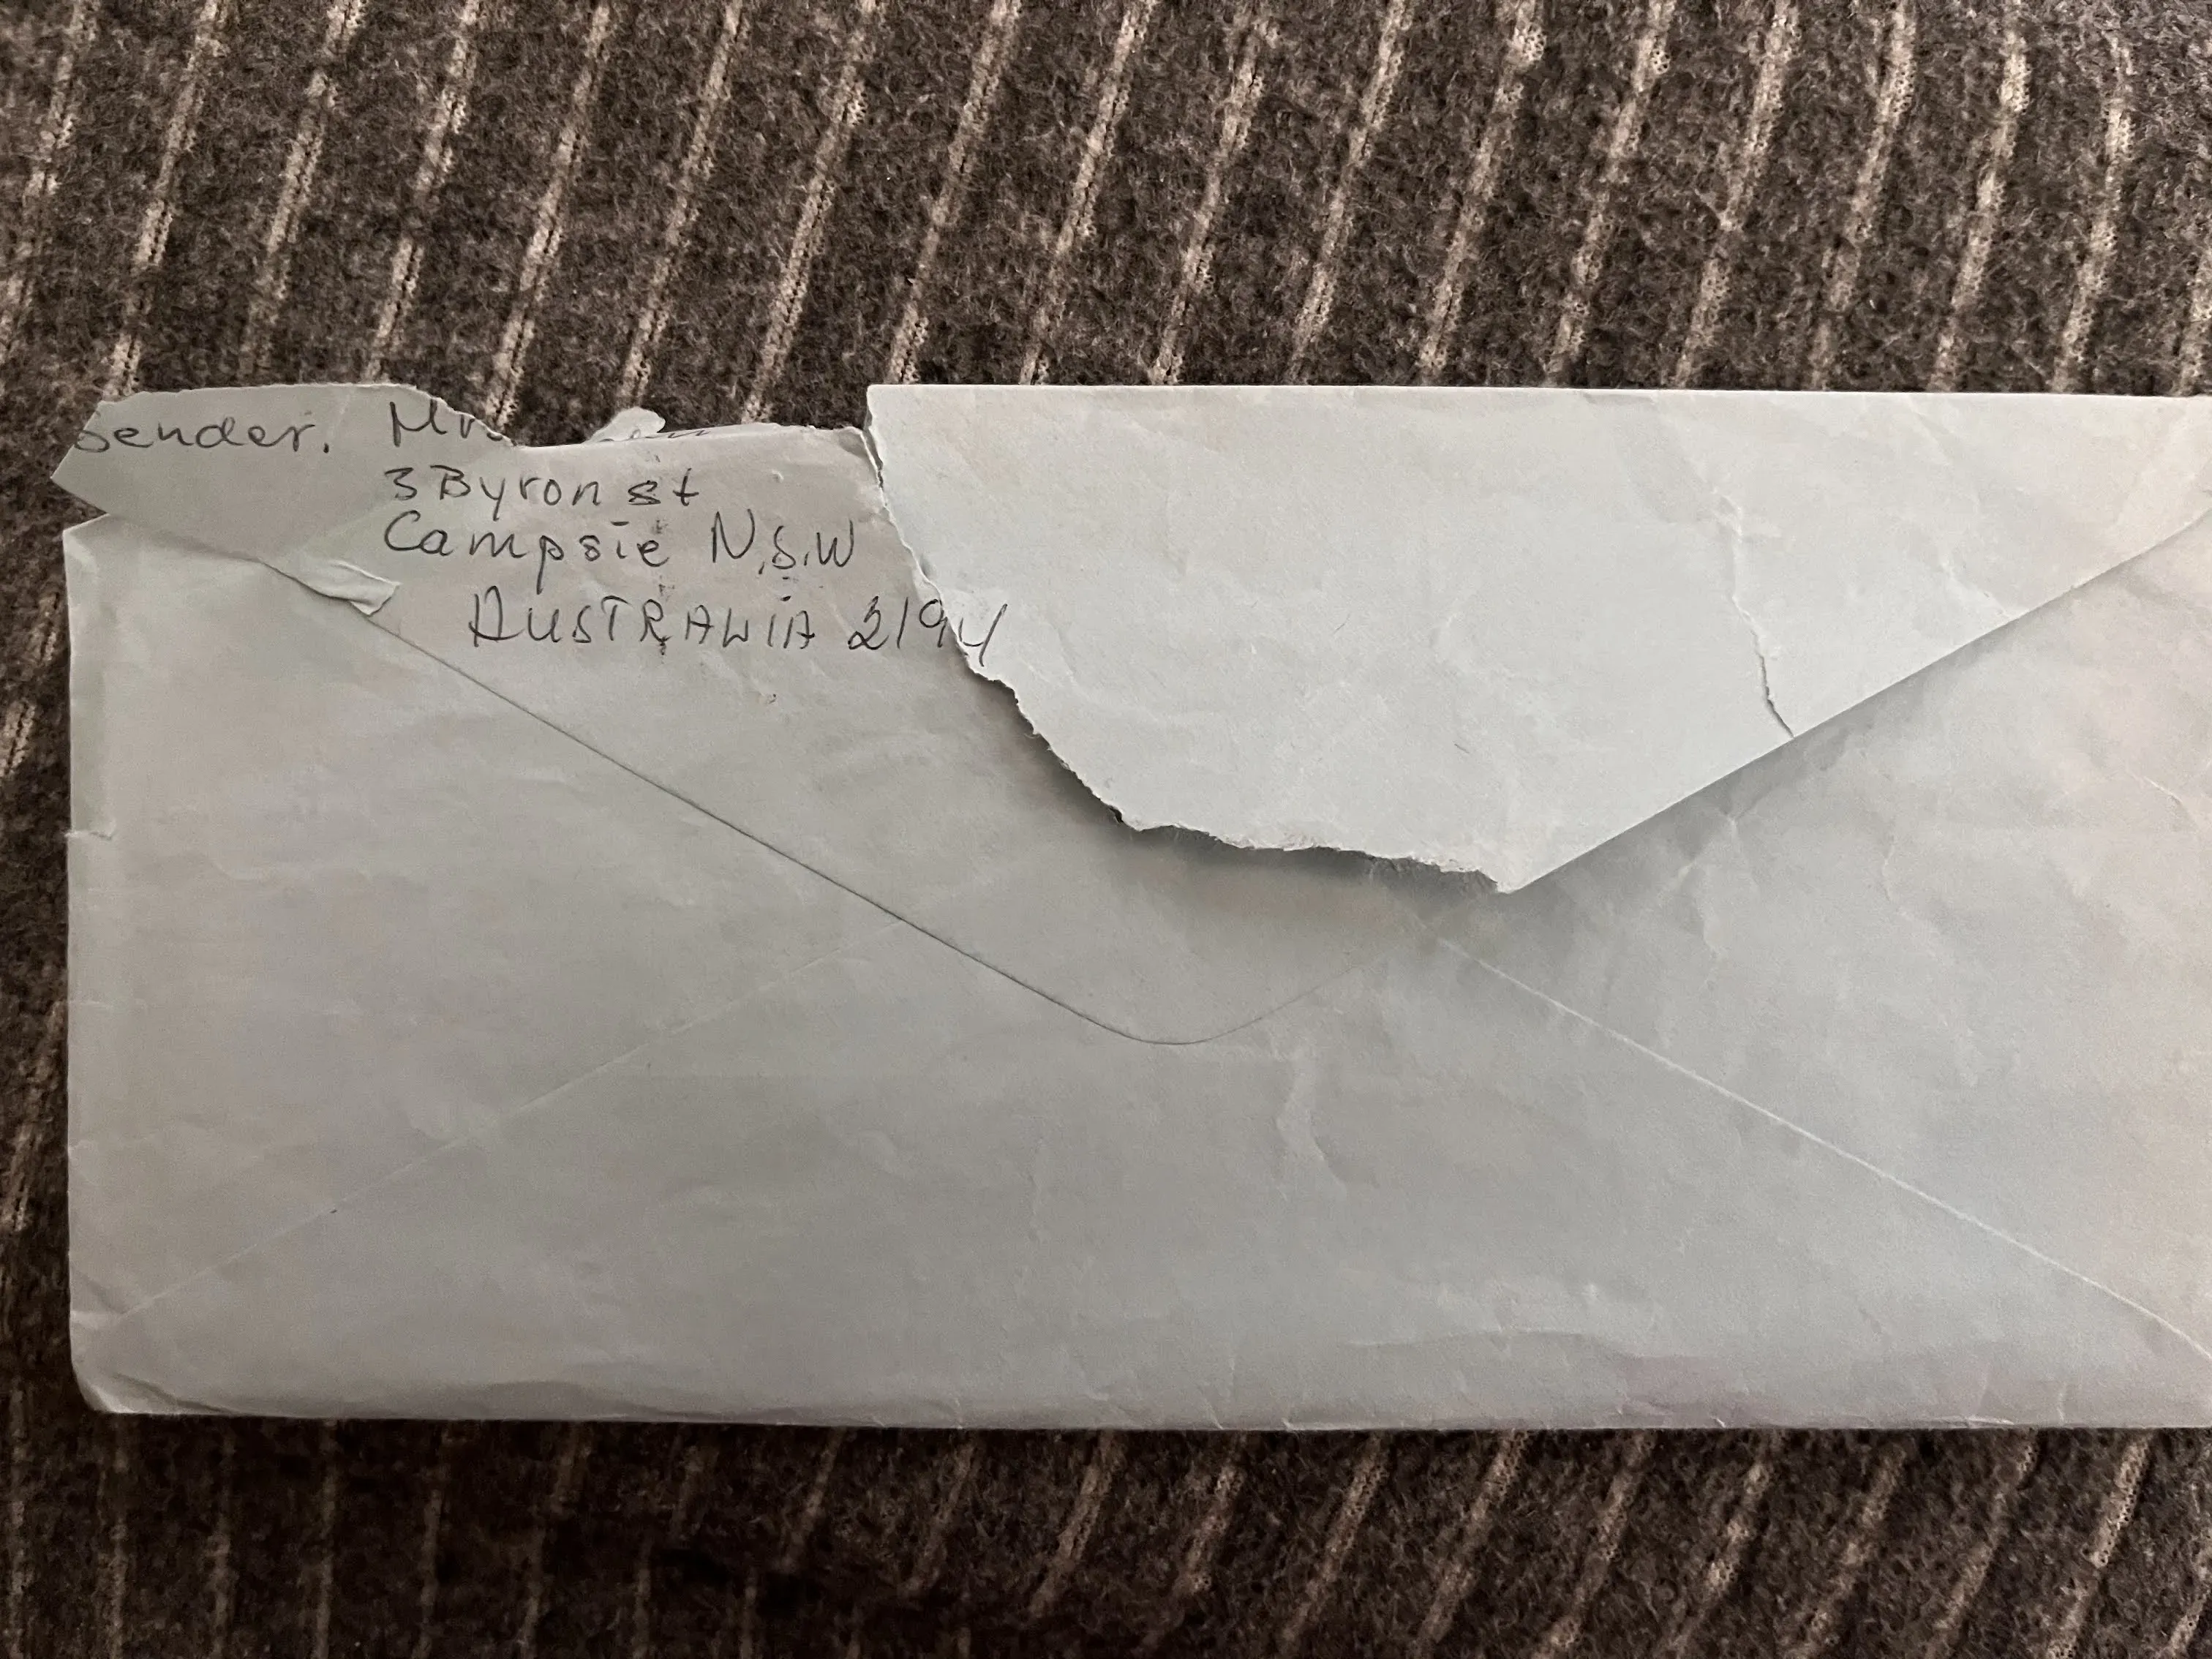 Sender. Mr
3 Byron st
Campsie N.S.W
AUSTRALIA 2194